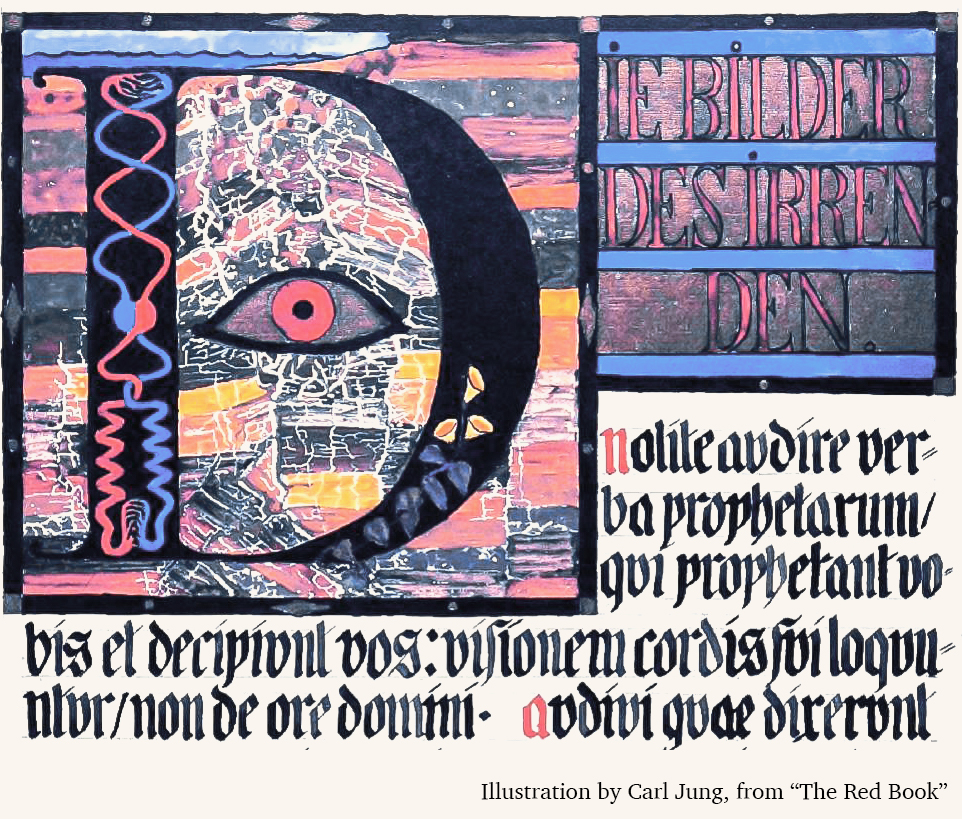 DIE BILDER
DES IRREN
DEN.
nolite avdire ver=
ba prophetarum/
qvi prophetant vo=
bis et decipivnt vos: viſionem cordis ſvi loqvu=
ntvr/ non de ore domini. avdivi qvae dixervnt
Illustration by Carl Jung, from “The Red Book”